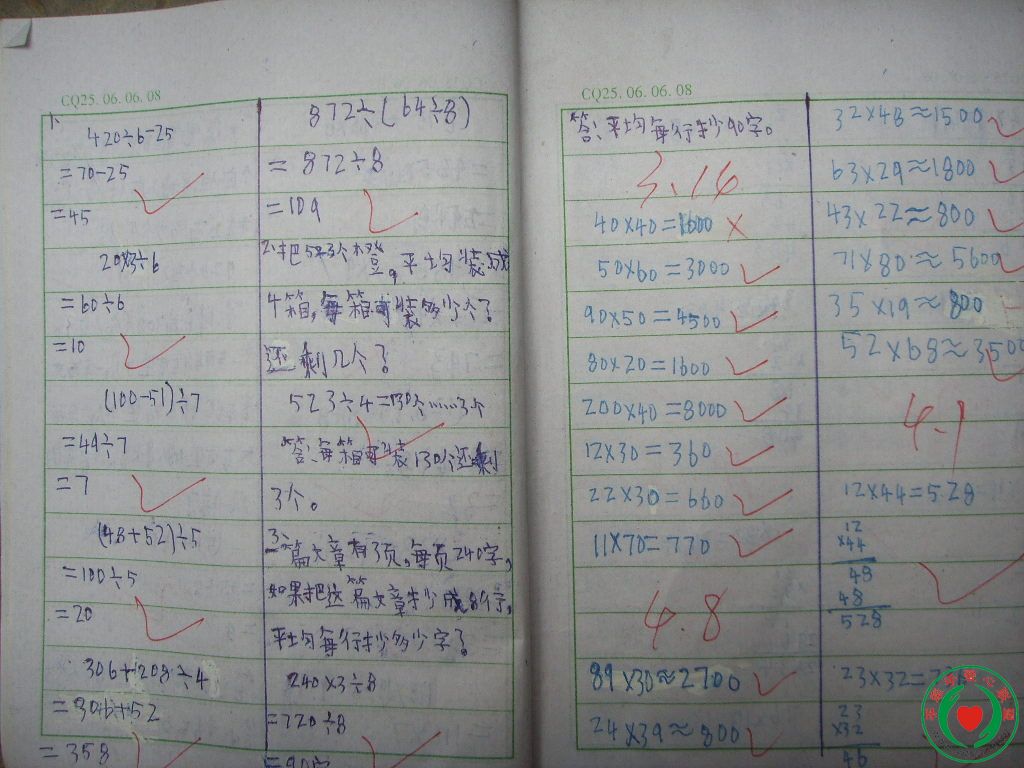 CQ25.06.06.08
1、
420÷6-25
=70-25
=45
20×3÷6
=60÷6
=10
(100-51)÷7
=49÷7
=7
(48+52)÷5
=100÷5
=20
306+208÷4
=306+52
=358
872÷(64÷8)
=872÷8
=109
2、把523个橙,平均装成
4箱,每箱可装多少个?
还剩几个?
523÷4=130个……3个
答:每箱可装130个还剩
3个。
3、一篇文章有3页,每页240字,
如果把这篇文章抄成8行字,
平均每行抄多少字?
240×3÷8
=720÷8
=90字
CQ25.06.06.08
答:平均每行抄90字。
3.16
40×40=1600
50×60=3000
90×50=4500
80×20=1600
200×40=8000
12×30=360
22×30=660
11×70=770
4.8
89×30≈2700
24×39≈800
32×48≈1500
63×29≈1800
43×22≈800
71×80≈5600
35×19≈800
52×68≈3500
4.1
12×44=528
12
×44
48
48
528
23×32=
23
×32
46